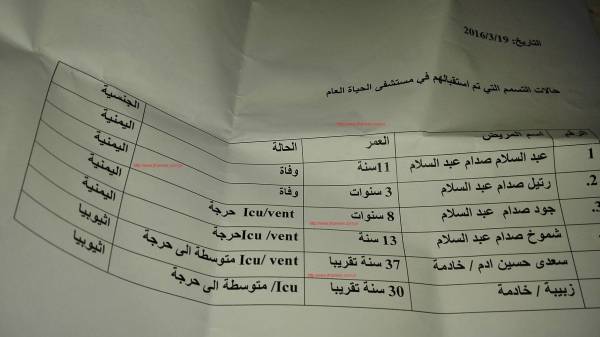 التاريخ: 2016/3/19
حالات التسمم التي تم استقبالهم في مستشفى الحياة العام
الرقم اسم المريض العمر الحالة الجنسية
1 عبد السلام صدام عبد السلام 11سنة وفاة اليمنية
2. رتيل صدام عبد السلام 3 سنوات وفاة اليمنية
3. جود صدام عبد السلام 8 سنوات Icu/vent حرجة اليمنية
شموخ صدام عبد السلام 13 سنة Icu/ventحرجة اليمنية
سعدى حسين ادم / خادمة 37 سنة تقريبا Icu/ vent متوسطة الى حرجة اثيوبيا
زبيبة / خادمة 30 سنة تقريبا Icu/ متوسطة الى حرجة اثيوبيا